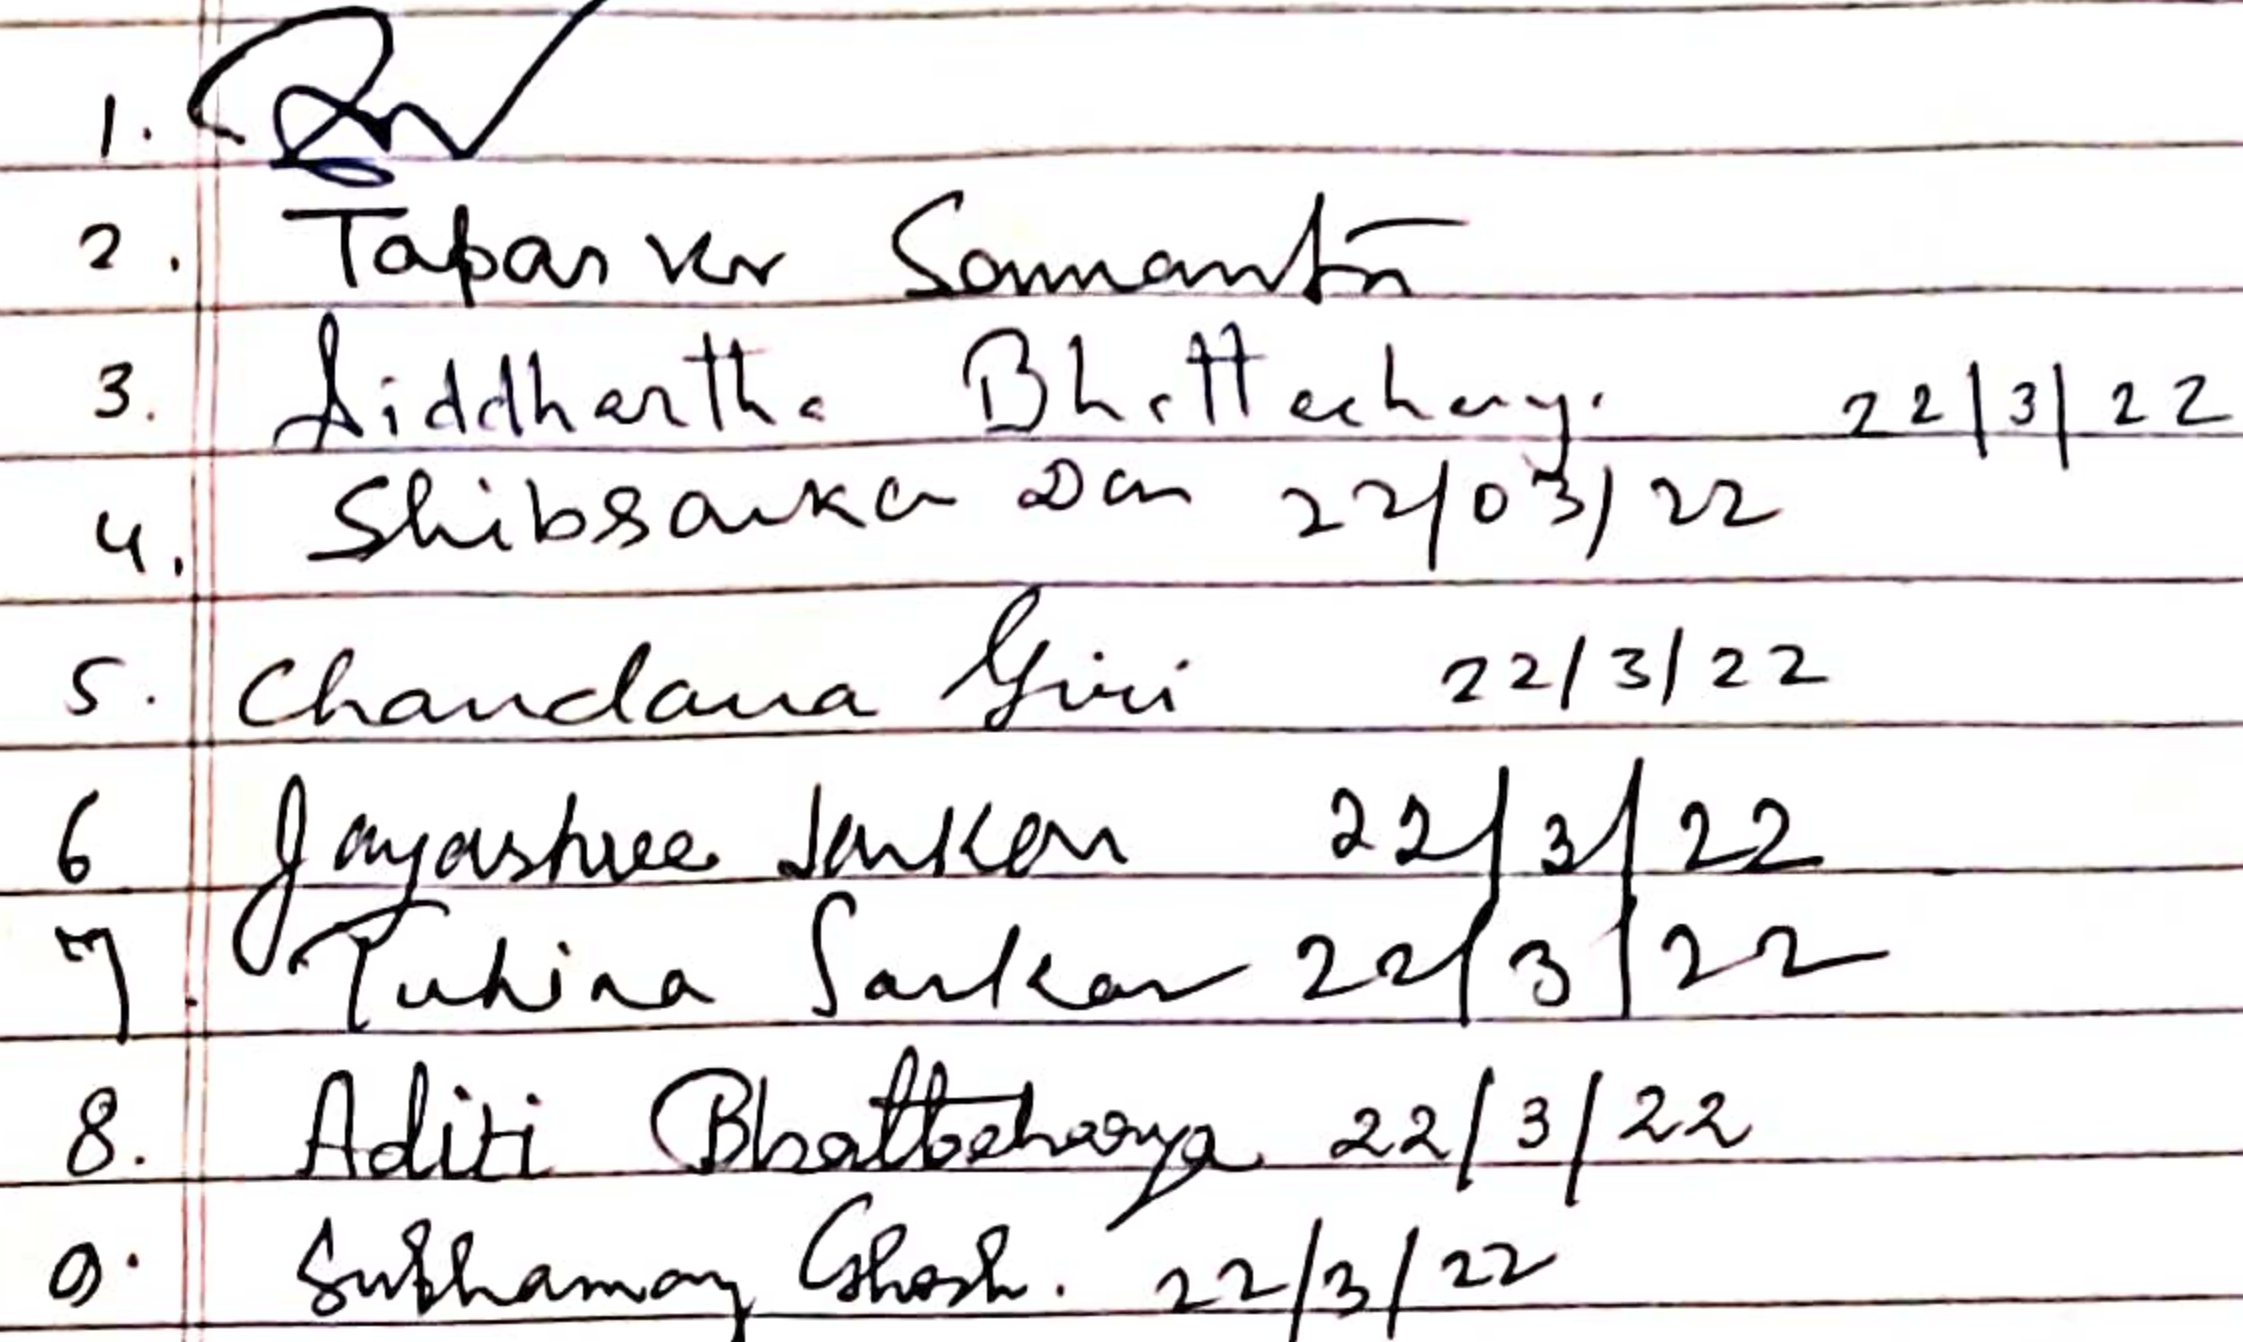 1.
2. Tapas kr Samanta
3. Siddhartha Bhattacharya 22/3/22
4. Shibsankar Das 22/03/22
5. Chandana Giri 22/3/22
6 Jayashree Sarkar 22/3/22
7. Tuhina Sarkar 22/3/22
8. Aditi Bhattacharya 22/3/22
9. Subhamay Ghosh. 22/3/22